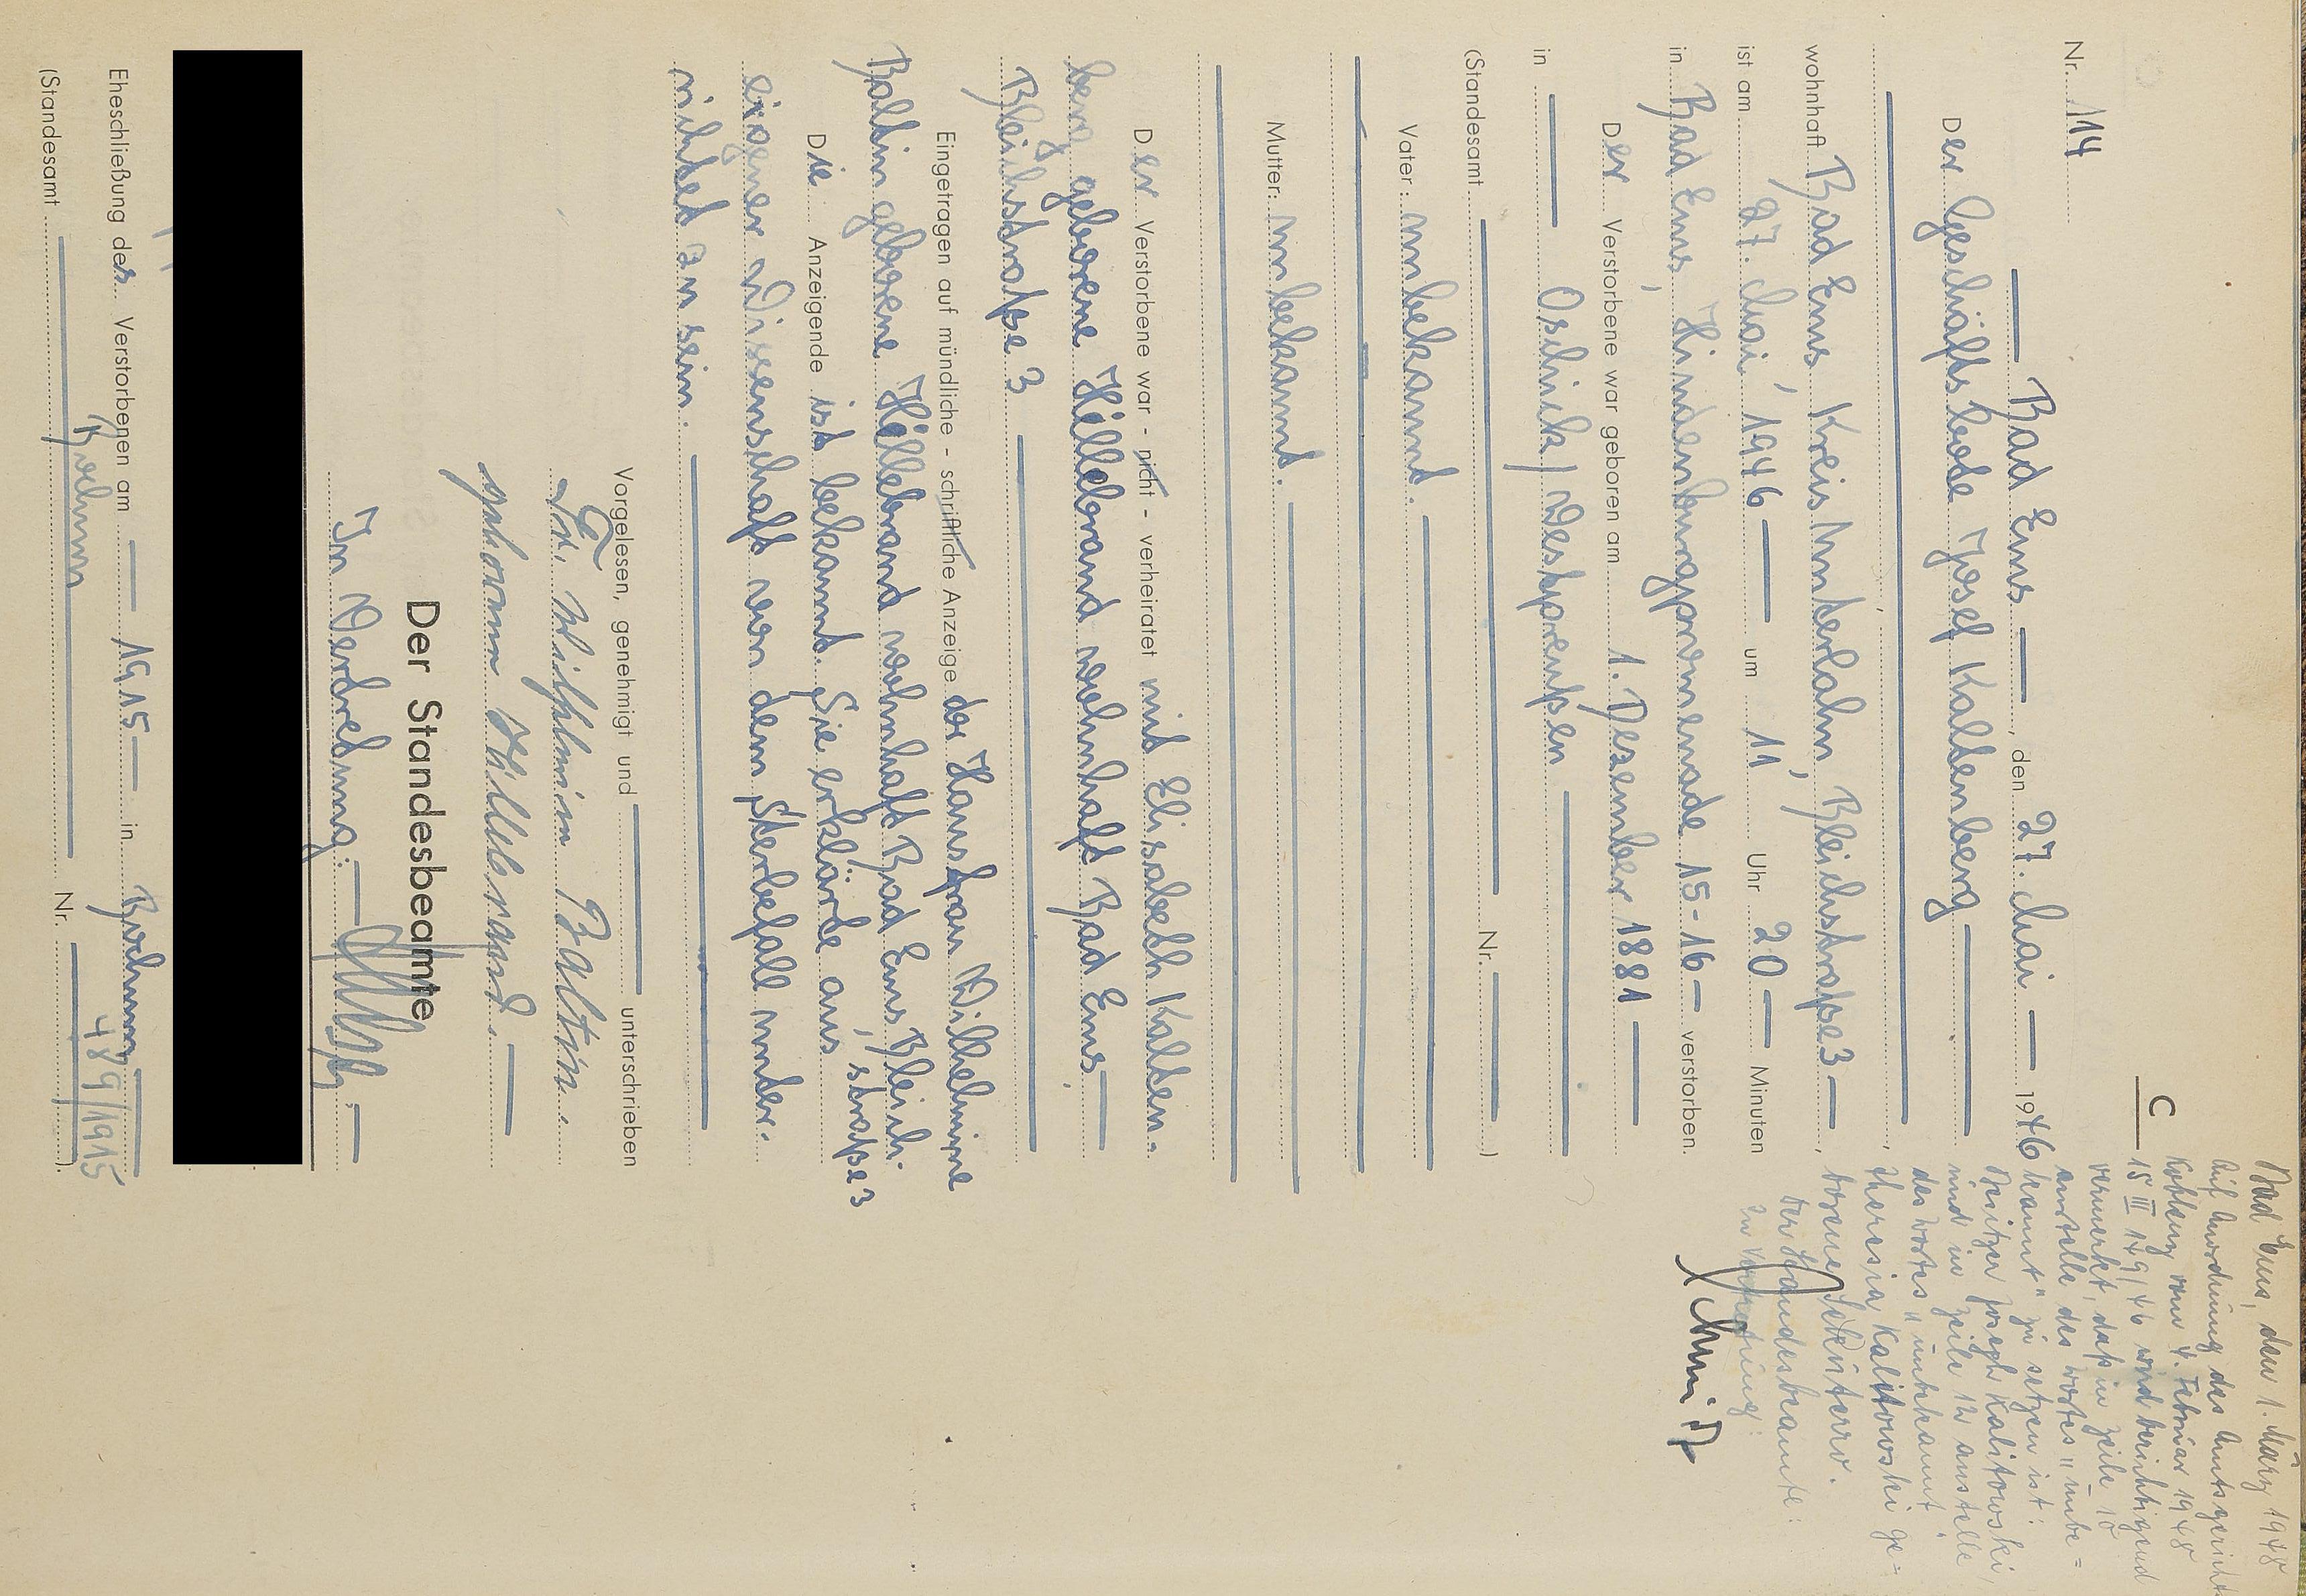 C
Nr. 114
— Bad Ems —, den 27. Mai — 1946
Der Geschäftsbote Josef Kaltenberg —
wohnhaft Bad Ems Kreis Unterlahn, Bleichstraße 3 —,
ist am 27. Mai 1946 — um 11 Uhr 20 — Minuten
in Bad Ems, Hindenburgpromenade 15-16 — verstorben.
Der Verstorbene war geboren am 1. Dezember 1881 —
in — Oschick / Westpreußen —
(Standesamt — Nr. —)
Vater: unbekannt. —
Mutter: unbekannt. —
Der Verstorbene war - nicht - verheiratet mit Elisabeth Kalten-
berg geborene Hillebrand wohnhaft Bad Ems, —
Bleichstraße 3 —
Eingetragen auf mündliche - schriftliche Anzeige der Hausfrau Wilhelmine
Baltin geborene Hillebrand wohnhaft Bad Ems, Bleich-
straße 3
Die Anzeigende ist bekannt. Sie erklärte aus
eigener Wissenschaft von dem Sterbefall unter-
richtet zu sein. —
Vorgelesen, genehmigt und — unterschrieben
Fr. Wilhelmin Baltin.
geborenn Hillebrand. —
Der Standesbeamte
In Vertretung: —
Eheschließung des Verstorbenen am — 1915 — in Bochum —
(Standesamt Bochum — Nr. 489/1915).
Bad Ems, den 1. März 1948
Auf Anordnung des Amtsgerichts
Koblenz vom 4. Februar 1948
15 III 149/46 wird berichtigend
vermerkt, daß in Zeile 10
anstelle des Wortes "unbe=
kannt" zu setzen ist:
Besitzer Joseph Kalitowski,
und in Zeile 12 anstelle
des Wortes "unbekannt"
Theresia Kalitowski ge=
borene
Der Standesbeamte:
In Vertretung:
Schmidt